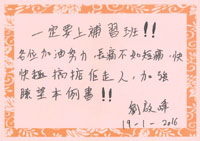 一定要上補習班!!
各位加油努力,長痛不如短痛,快
快趕
走人,加強
眺望本例書!!
劉
19-1-2016